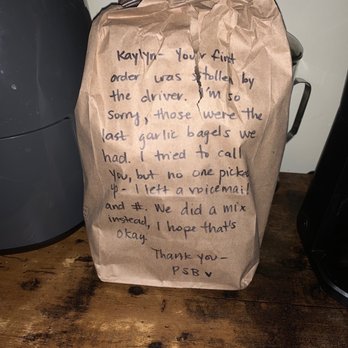 Kaylyn- Your first
order was stollen by
the driver. I'm so
sorry, those were the
last garlic bagels we
had. I tried to call
you, but no one picked
up- I left a voicemail
and #. We did a mix
instead, I hope that's
okay.
Thank you-
PSB ♥